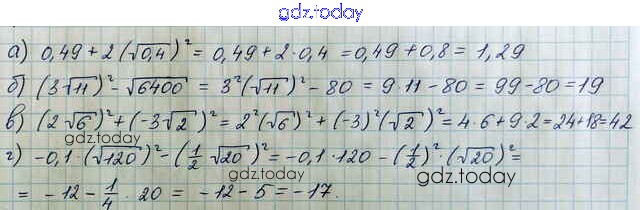 gdz.today
а) 0,49 + 2(√0,4)² = 0,49 + 2·0,4 = 0,49 + 0,8 = 1,29
б) (3√11)² - √6400 = 3²(√11)² - 80 = 9·11 - 80 = 99 - 80 = 19
в) (2√6)² + (-3√2)² = 2²(√6)² + (-3)²(√2)² = 4·6 + 9·2 = 24 + 18 = 42
gdz.today
г) -0,1·(√120)² - (1/2 √20)² = -0,1·120 - (1/2)²·(√20)² =
gdz.today
= -12 - 1/4 · 20 = -12 - 5 = -17.